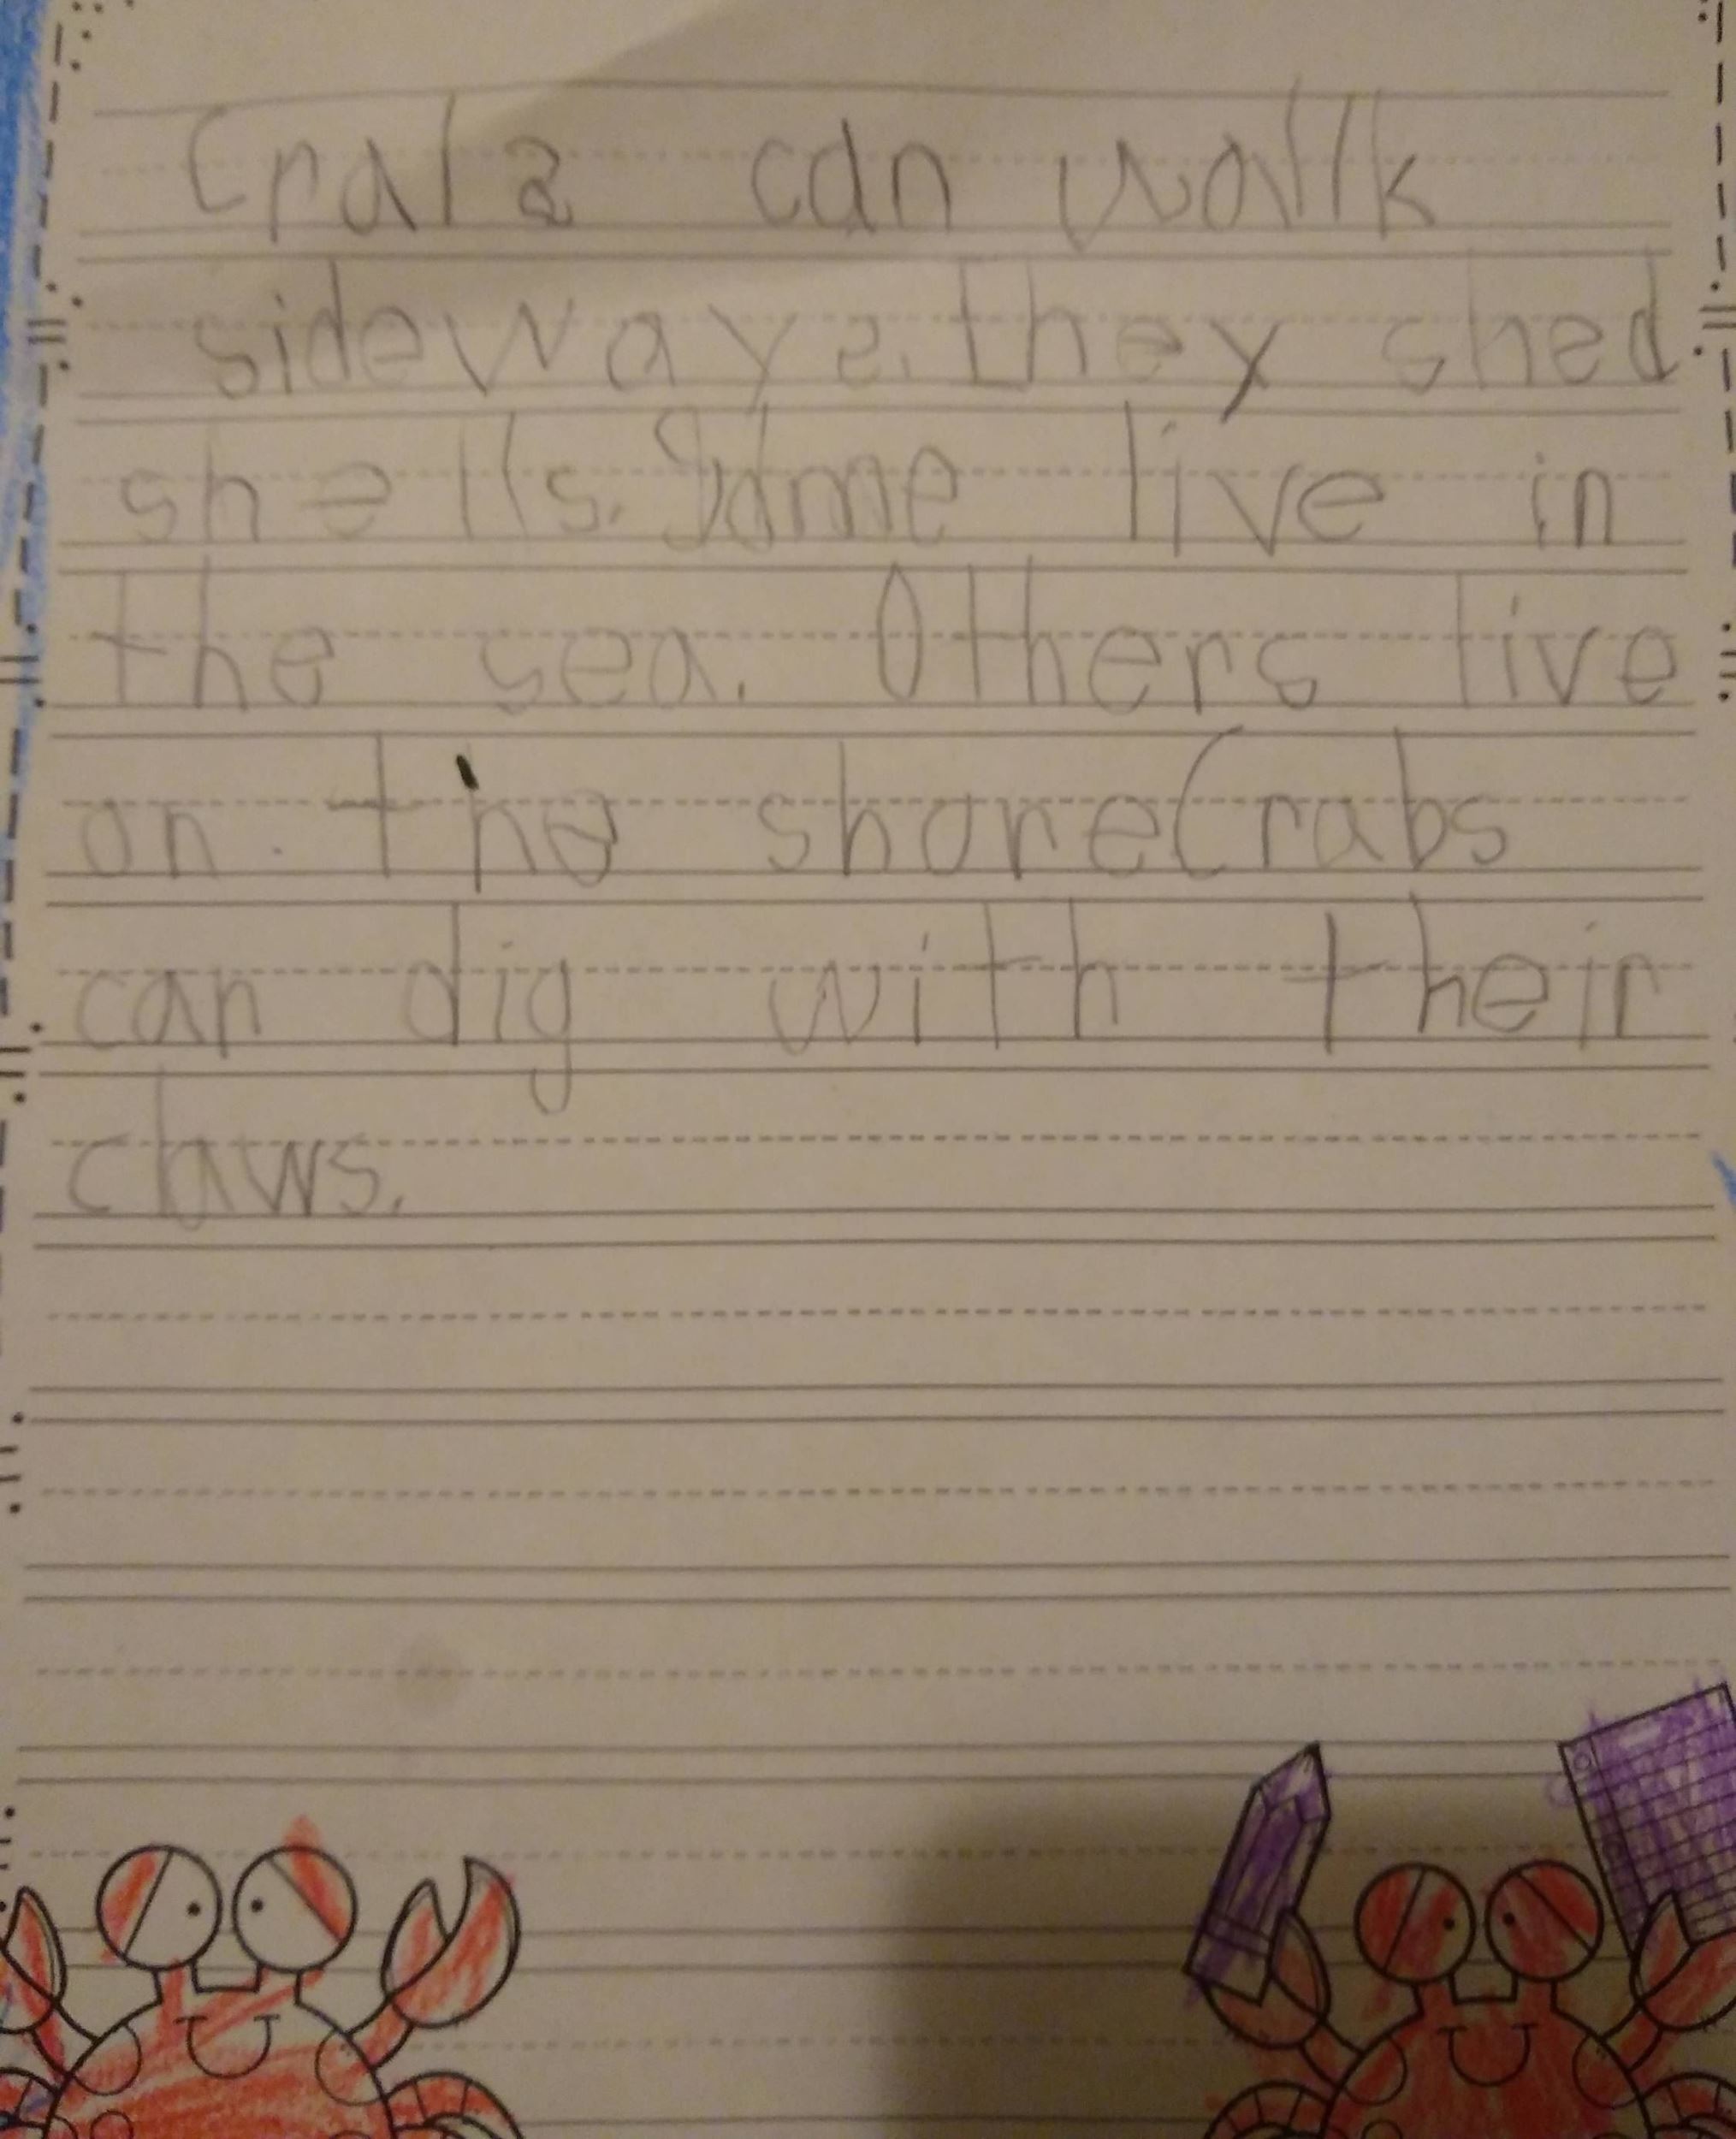 Crabs can wallk
sideways. they shed
shells. Some live in
the sea. Others live
on the shore Crabs
can dig with their
claws.